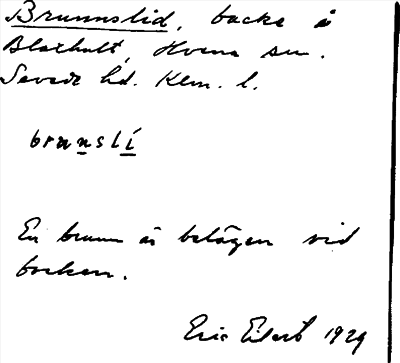 Brunnslid, backe å
Blaxhult, Hvena sn.
Sevede hd. Klm. l.
brunslí
En brunn är belägen vid
backen.
Eric Eilert 1929